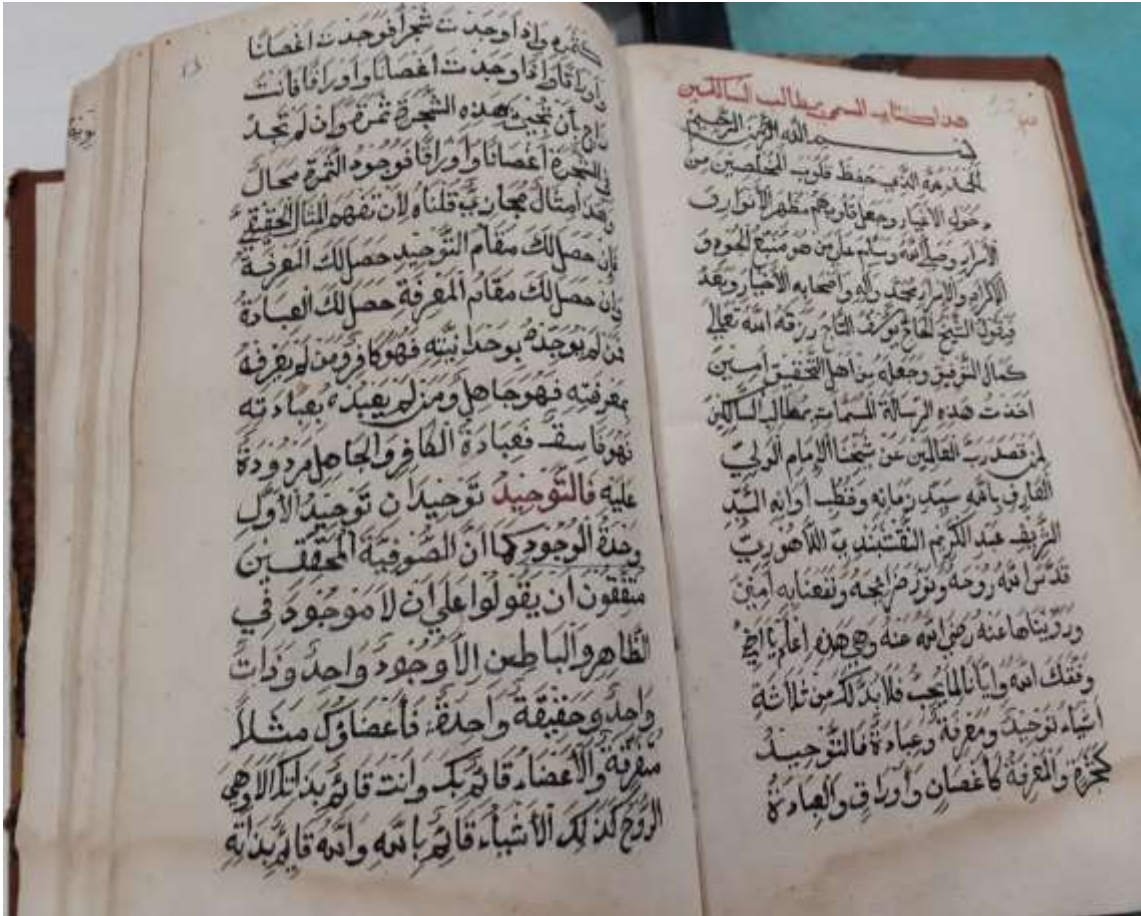 هذا كتاب المسمى بمطالب السالكين
بسم الله الرحمن الرحيم
الحمد لله الذي حفظ قلوب المخلصين من
دخول الاغيار وجعل قلوبهم مظهر الأنوار و
الأسرار وصلى الله وسلم على من هو منبع الجود و
الإكرام والإسرار محمد وآله وأصحابه الأخيار وبعد
فيقول الشيخ الحاج يوسف التاج رزقه الله تعالى
كمال التوفيق وجعله من أهل التحقيق أمين
اخذت هذه الرسالة المسمات بمطالب السالكين
لمن قصد رب العالمين عن شيخنا الإمام الولي
العارف بالله سيد زمانه وقطب اوانه السيد
الشريف عبد الكريم النقشبندي اللاهوري
قدس الله روحه ونور ضريحه ونفعنا به أمين
ورويناها عنه رضي الله عنه وهي هذه اعلم يا اخي
وفقك الله وإيانا لما يحب فلا بد لك من ثلاثة
أشياء توحيد ومعرفة وعبادة فالتوحيد
كشجرة والمعرفة كأغصان وأوراق والعبادة
كثمرة وإذا وجدت شجرا فوجدت اغصانا
وأوراقا وإذا وجدت أغصانا وأوراقا فانت
راج بأن تجيئ هذه الشجرة ثمرة وإن لم تجد
في الشجرة أغصانا وأوراقا فوجود الثمرة محال
وهذا مثال مجازي قلناه لأن تفهم المثال الحقيقي
فإن حصل لك مقام التوحيد حصل لك المعرفة
وإن حصل لك مقام المعرفة حصل لك العبادة
فمن لم يوحده بوحدانيته فهو كافر ومن لم يعرفه
بمعرفته فهو جاهل ومن لم يعبده بعبادته
فهو فاسق فعبادة الكافر والجاهل مردودة
عليه فالتوحيد توحيدان توحيد الأول
وحدة الوجود كما ان الصوفية المحققين
متفقون أن يقولوا على أن لا موجود في
الظاهر والباطن إلا وجود واحد وذات
واحد وحقيقة واحدة فأعضاؤك مثلا
متفرقة والأعضاء قائم بك وانت قائم بذاتك الا وهي
الروح كذلك الأشياء قائم بالله والله قائم بذاته